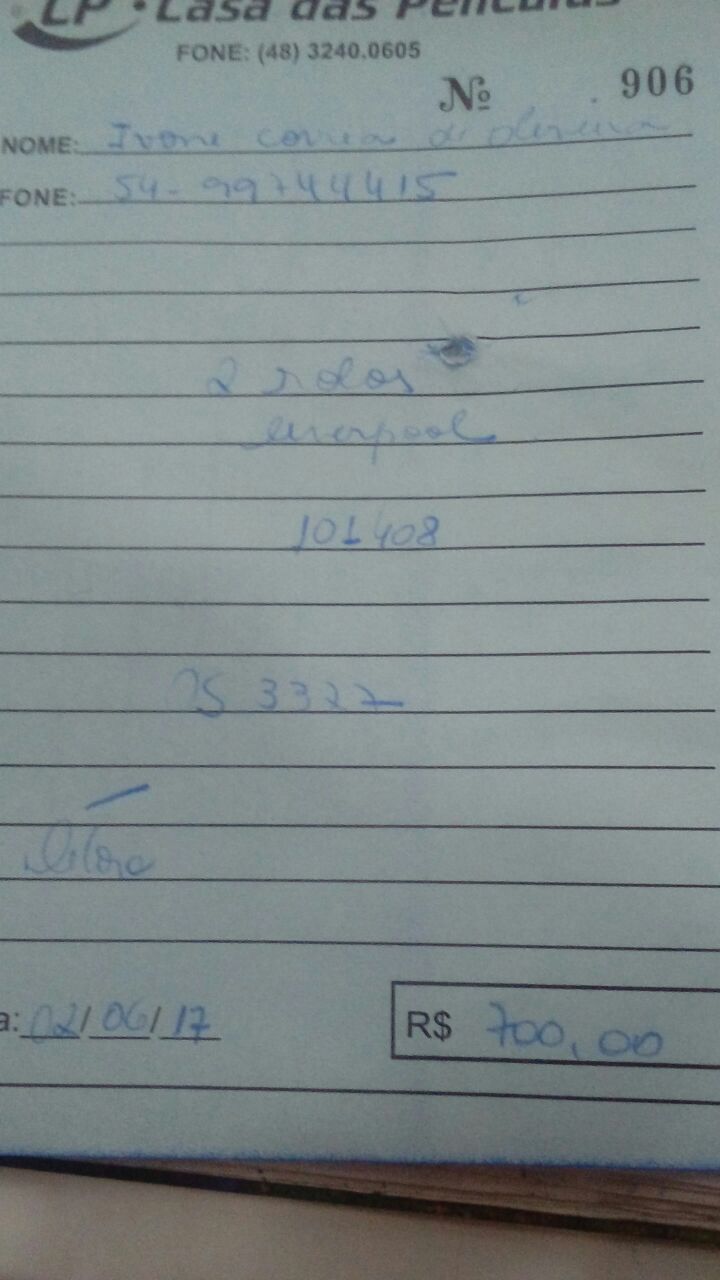 LP • Casa das Películas
FONE: (48) 3240.0605
Nº 906
NOME: Ivone correa de oliveira
FONE: 54-99744415
2 rolos
liverpool
101408
3327
a: 02/06/17
R$ 700,00